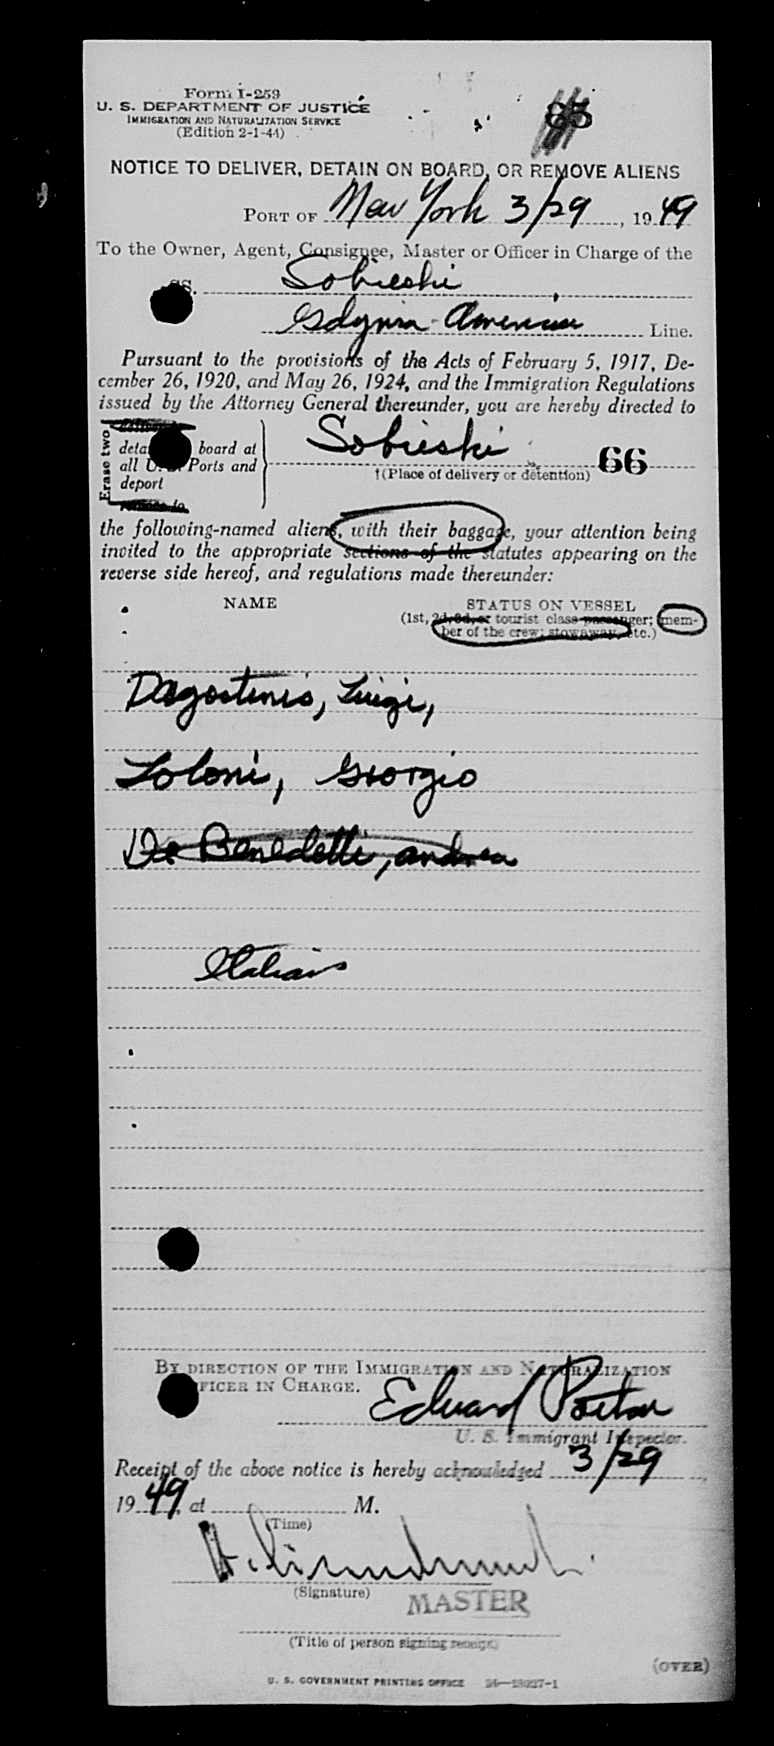 Form I-259
U. S. DEPARTMENT OF JUSTICE
IMMIGRATION AND NATURALIZATION SERVICE
(Edition 2-1-44)
65
NOTICE TO DELIVER, DETAIN ON BOARD, OR REMOVE ALIENS
PORT OF New York 3/29, 1949
To the Owner, Agent, Consignee, Master or Officer in Charge of the
SS. Sobieski
Gdynia-America Line.
Pursuant to the provisions of the Acts of February 5, 1917, De-
cember 26, 1920, and May 26, 1924, and the Immigration Regulations
issued by the Attorney General thereunder, you are hereby directed to
Erase two
board at
all U. Ports and
deport
Sobieski 66
†(Place of delivery or detention)
the following-named aliens, with their baggage, your attention being
invited to the appropriate sections of the statutes appearing on the
reverse side hereof, and regulations made thereunder:
NAME STATUS ON VESSEL
(1st, 2d, 3d, or tourist class passenger; mem-
ber of the crew; stowaway, etc.)
Dagostinis, Luigi,
Loloni, Giorgio
De Benedetti, Andrea
Italians
BY DIRECTION OF THE IMMIGRATION AND NATURALIZATION
OFFICER IN CHARGE.
Eduard
U. S. Immigrant Inspector.
Receipt of the above notice is hereby acknowledged 3/29
1949, at M.
(Time)
(Signature)
MASTER
(Title of person signing receipt)
(OVER)
U. S. GOVERNMENT PRINTING OFFICE